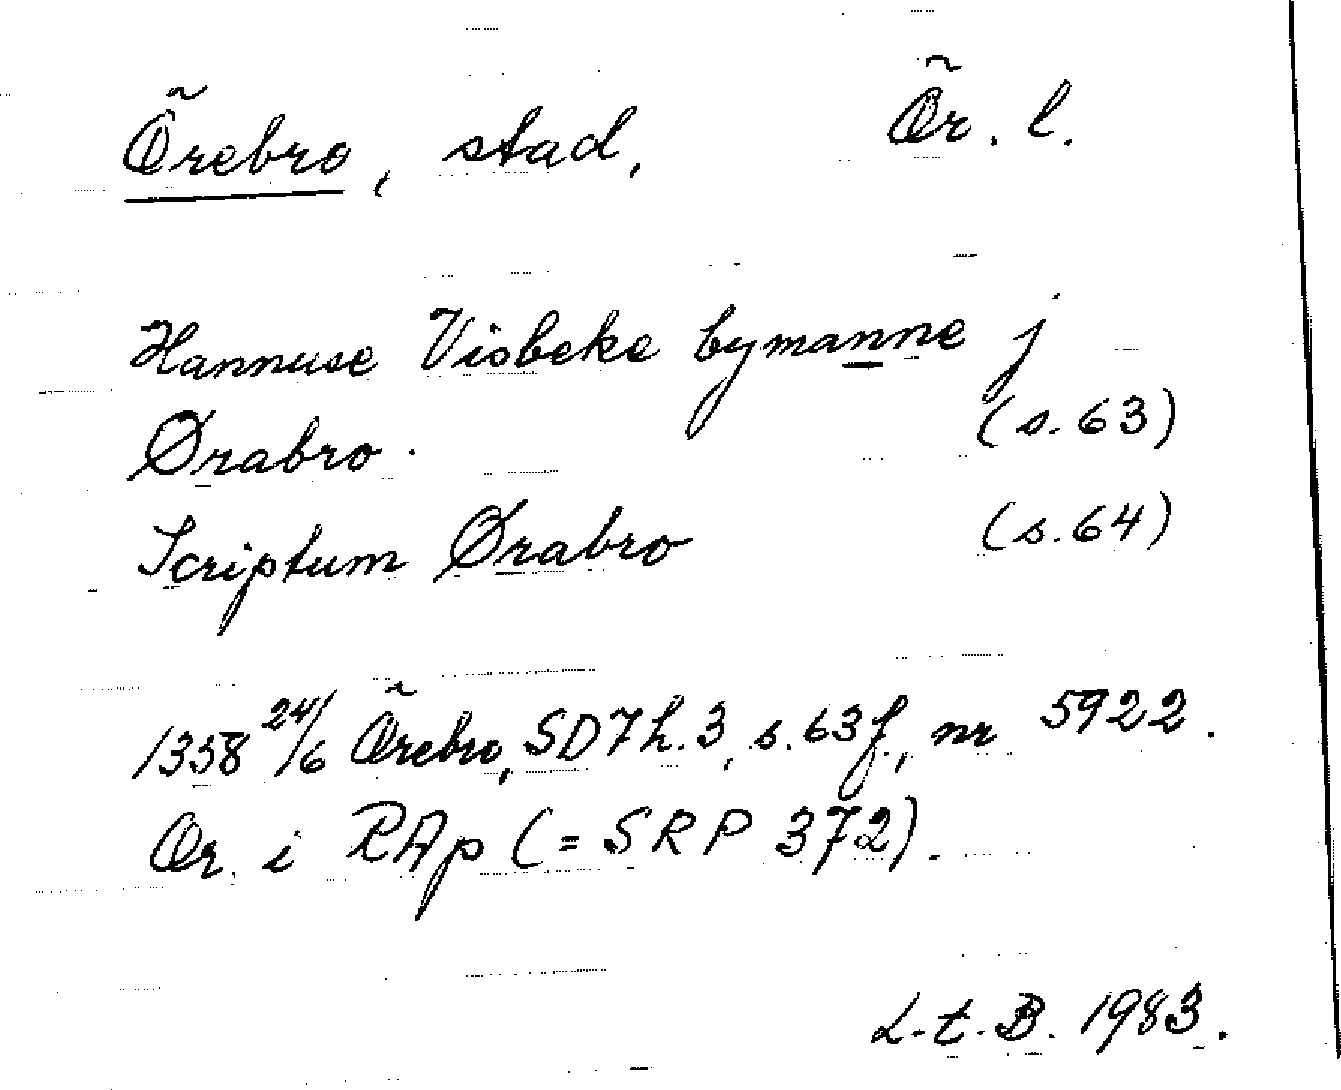 Örebro, stad, Ör. l.
Hannuse Visbeke bymanne j
Ørabro. (s. 63)
Scriptum Ørabro (s. 64)
1358 24/6 Örebro, SD 7 h. 3, s. 63 f., nr 5922.
Or. i RAp (= SRP 372).
L. t. B. 1983.